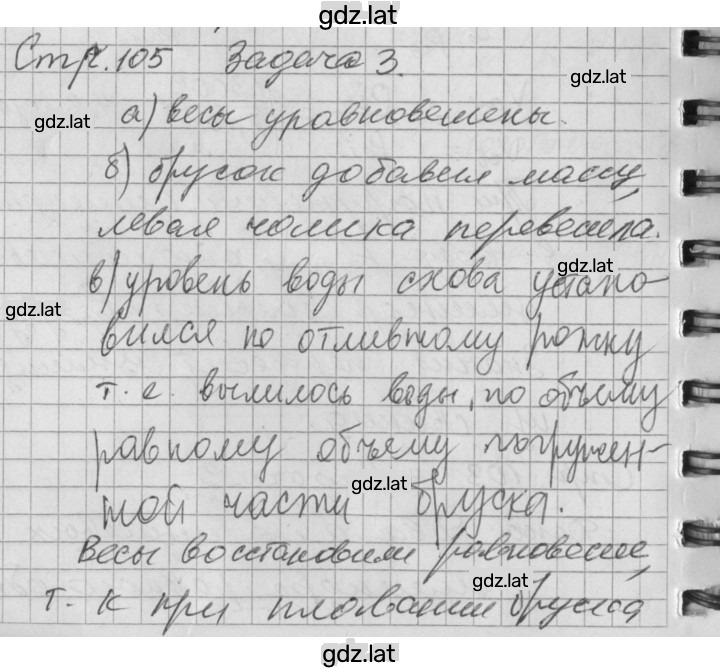 gdz.lat
Стр. 105 Задача 3.
gdz.lat
gdz.lat
а) весы уравновешены.
б) брусок добавил массу,
левая чашка перевесила.
gdz.lat
в) уровень воды снова устано-
gdz.lat
вился по отливному рожку
т. е. вылилось воды, по объему
равному объему погружен-
gdz.lat
ной части бруска.
Весы восстановили равновесие,
gdz.lat
т. к при плавании бруска
gdz.lat